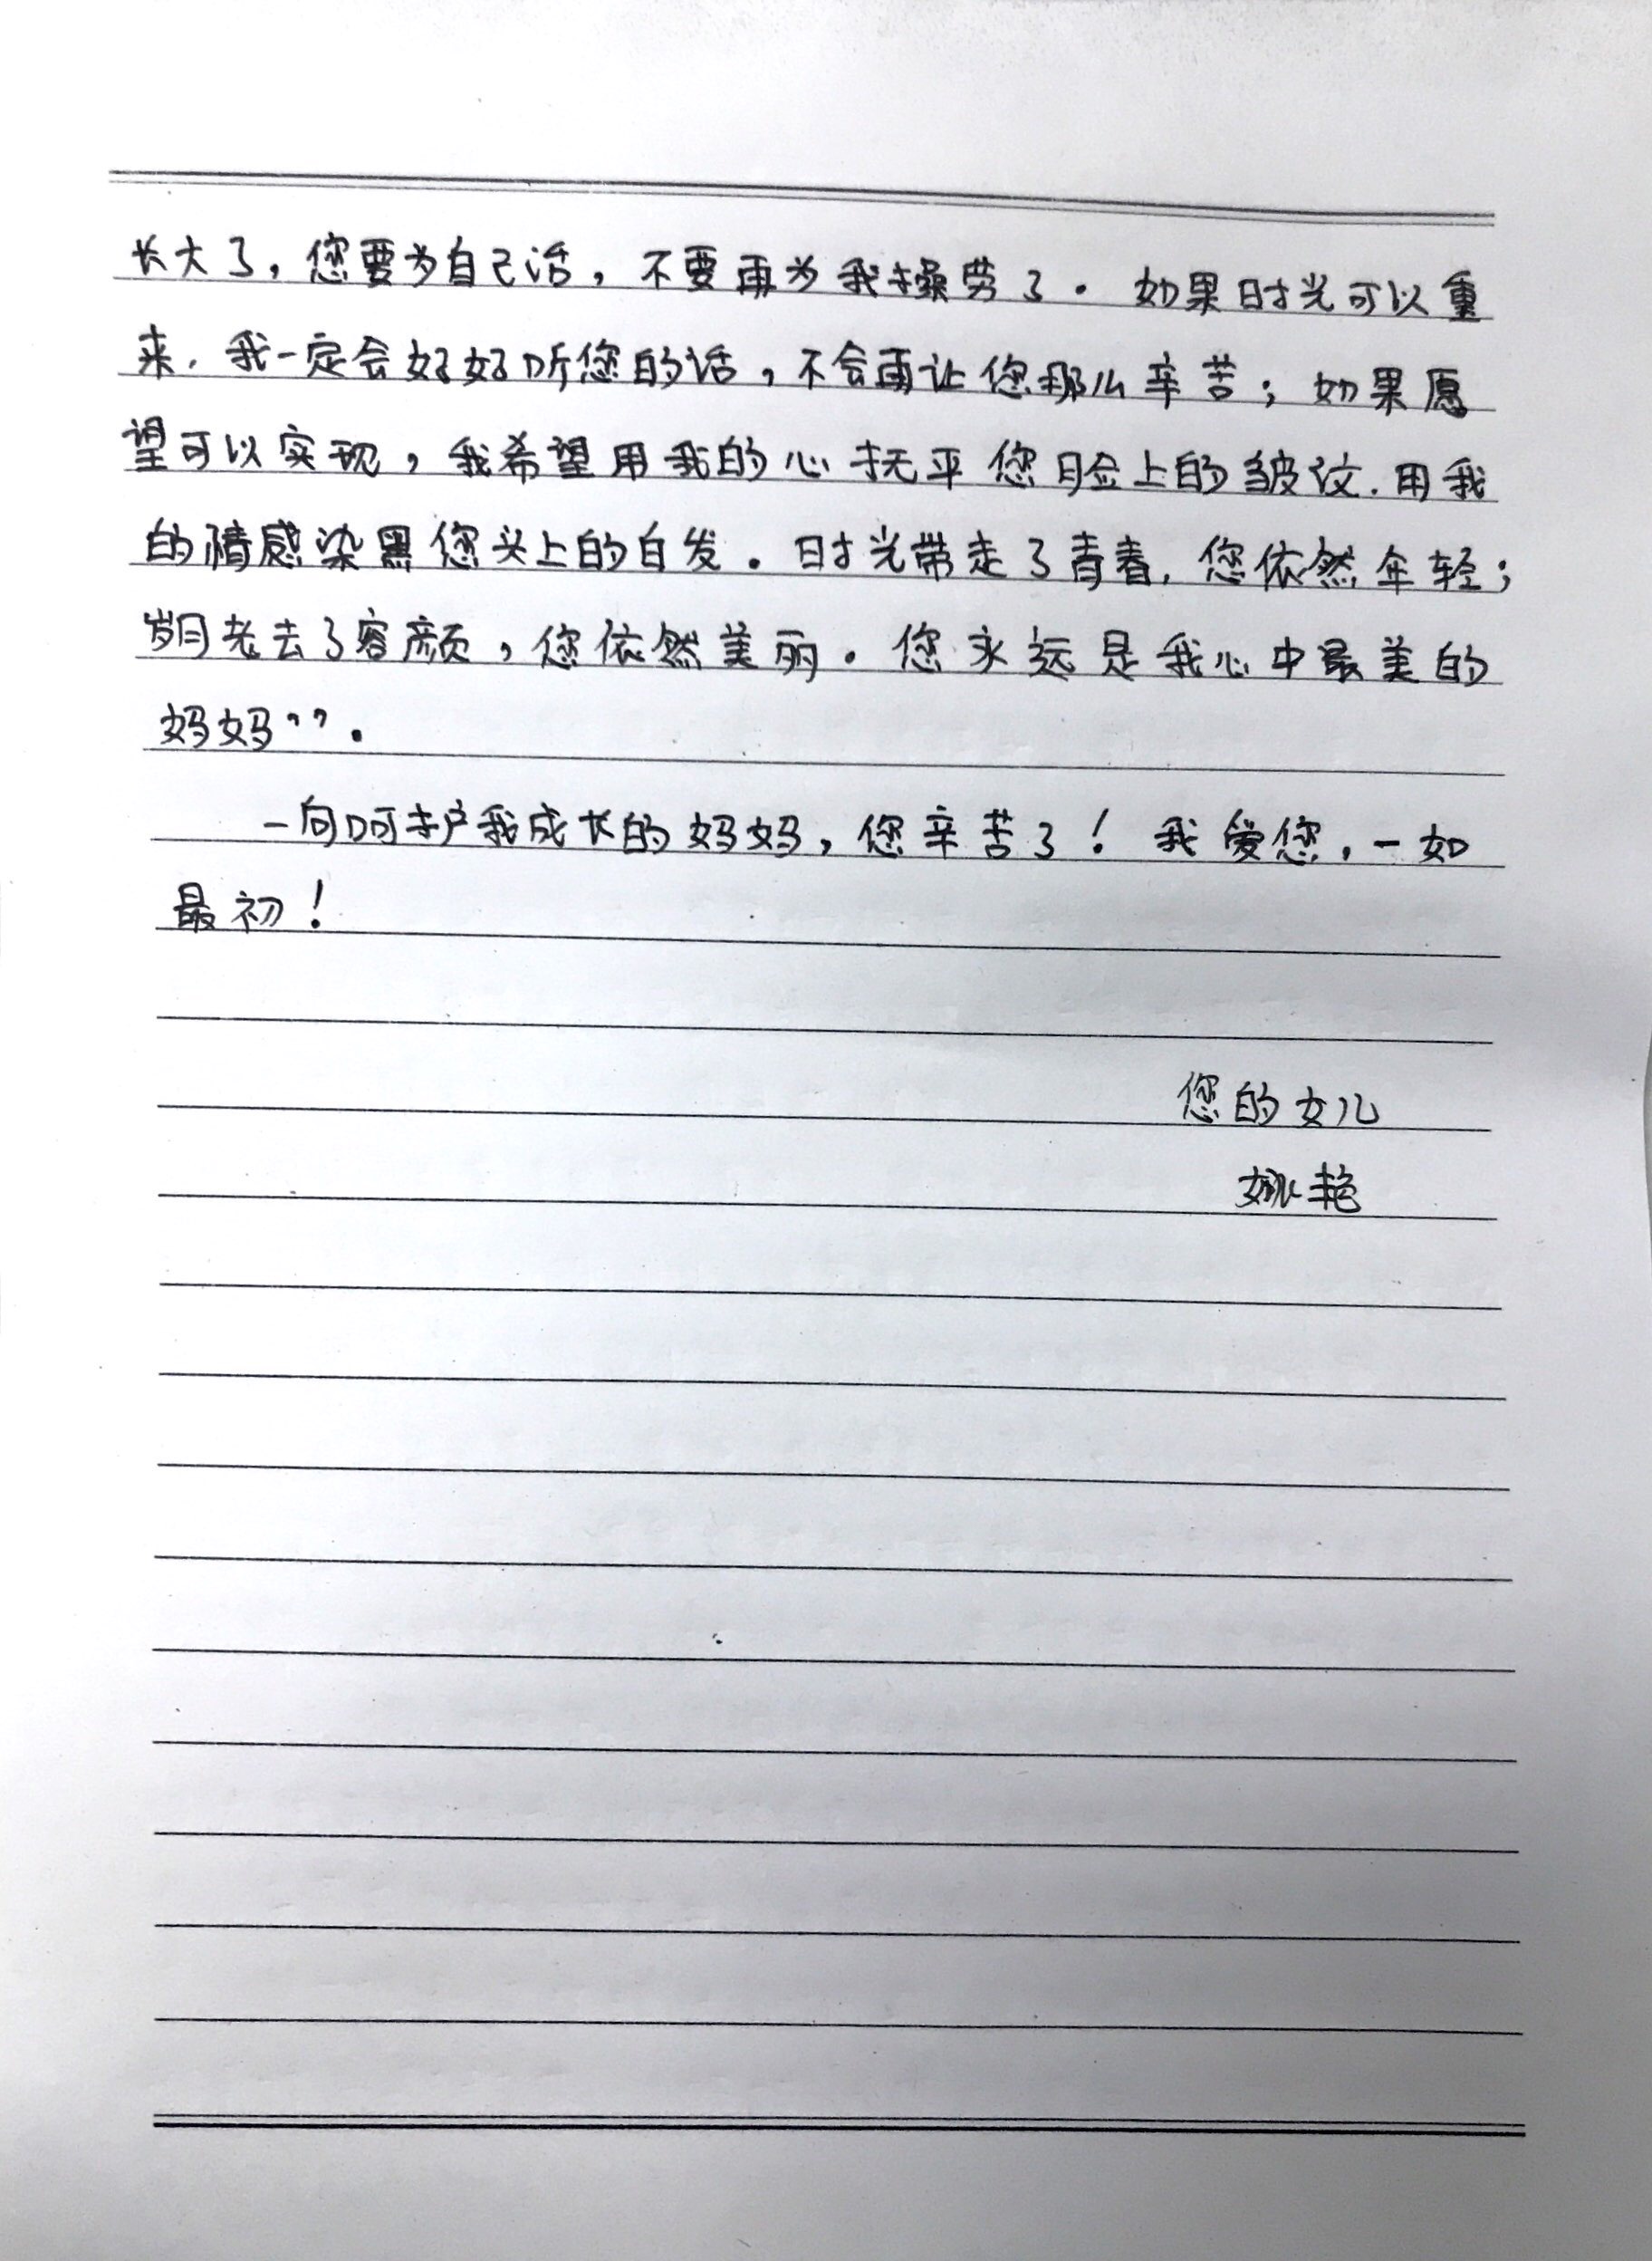 长大了，您要为自己活，不要再为我操劳了。如果时光可以重
来，我一定会好好听您的话，不会再让您那么辛苦；如果愿
望可以实现，我希望用我的心抚平您脸上的皱纹，用我
的情感染黑您头上的白发。时光带走了青春，您依然年轻；
岁月老去了容颜，您依然美丽。您永远是我心中最美的
妈妈”。
一向呵护我成长的妈妈，您辛苦了！我爱您，一如
最初！
您的女儿
姚艳